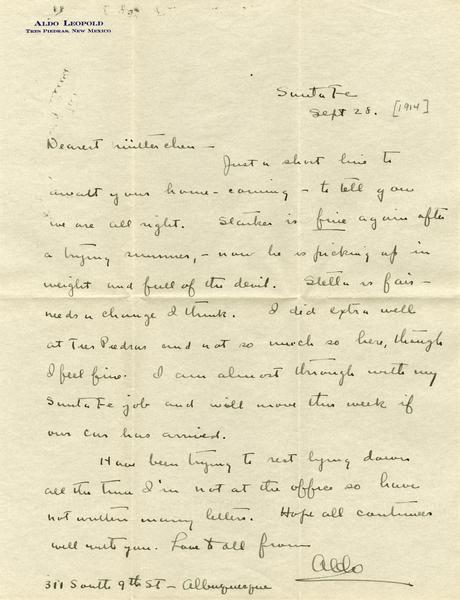 ALDO LEOPOLD
TRES PIEDRAS, NEW MEXICO
Santa Fe
Sept 28. [1914]
Dearest Mütterchen —
Just a short line to
await your home-coming — to tell you
we are all right. Starker is fine again after
a trying summer, — now he is picking up in
weight and full of the devil. Stella is fair —
needs a change I think. I did extra well
at Tres Piedras and not so much so here, though
I feel fine. I am almost through with my
Santa Fe job and will move this week if
our car has arrived.
Have been trying to rest lying down
all the time I'm not at the office so have
not written many letters. Hope all continues
well with you. Love to all from
Aldo
311 South 9th St — Albuquerque